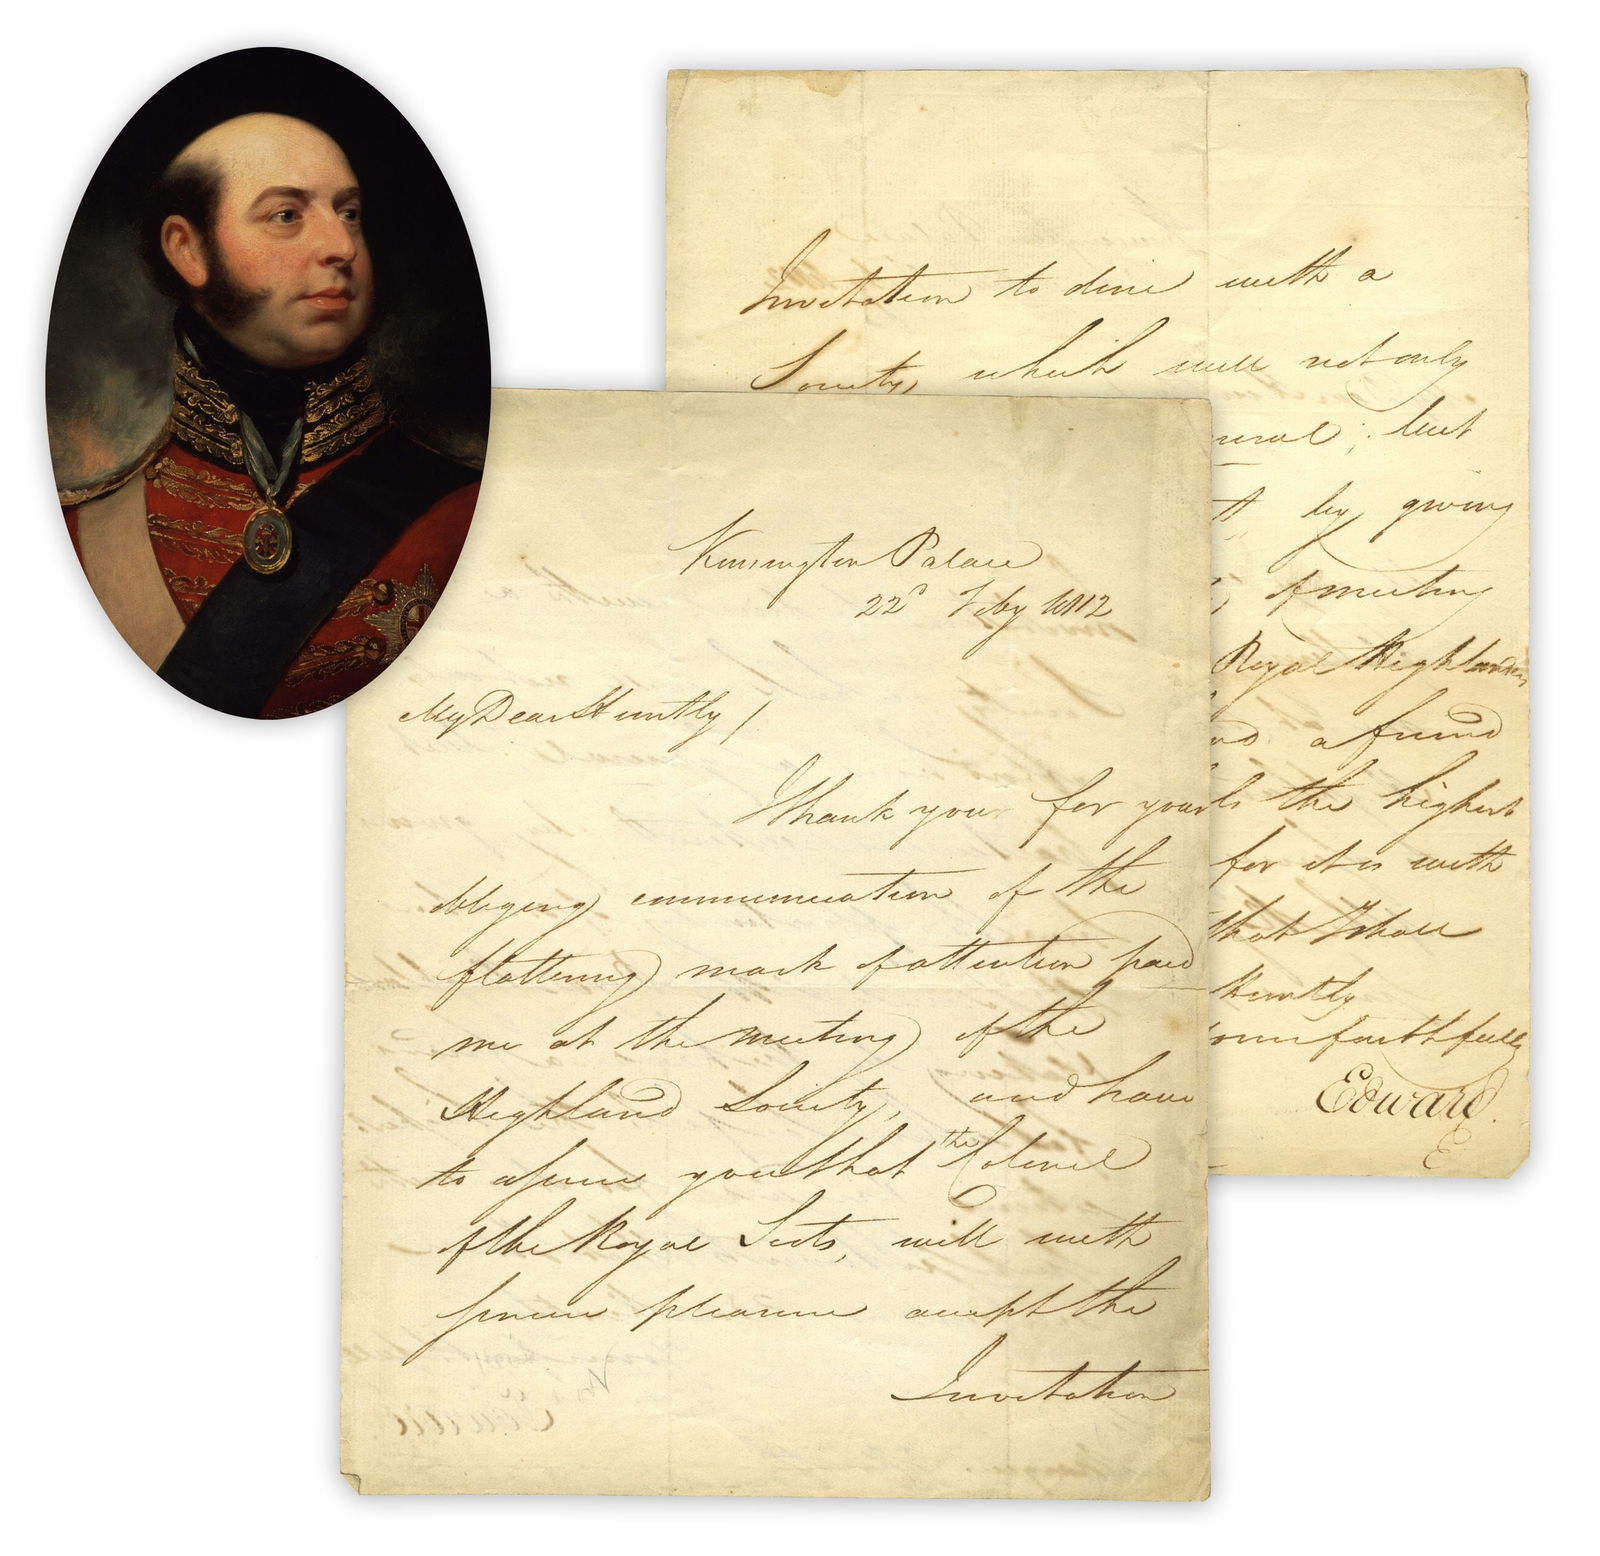 Kensington Palace
22d Feby 1812
My Dear Huntly /
I thank you for your
obliging communication of the
flattering mark of attention paid
me at the meeting of the
Highland Society, and have
to assure you that the Colonel
of the Royal Scots, will with
sincere pleasure accept the
Invitation
Invitation to dine with a
Society, which will not only
but
by giving
of meeting
Royal Highlanders
a fund
the highest
for it is with
that I shall
Huntly
faithfully
Edward.
E